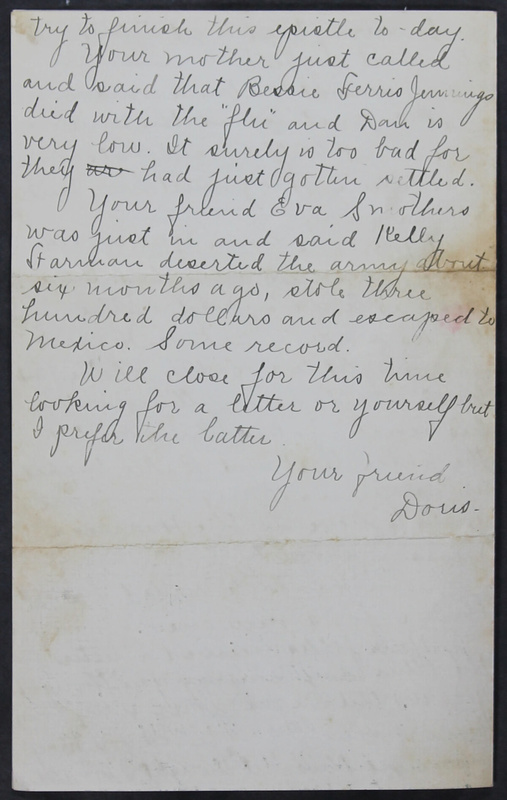 try to finish this epistle to-day.
Your mother just called
and said that Bessie Ferris Jennings
died with the "flu" and Dan is
very low. It surely is too bad for
they are had just gotten settled.
Your friend Eva Smothers
was just in and said Kelly
Starman deserted the army about
six months ago, stole three
hundred dollars and escaped to
Mexico. Some record.
Will close for this time
looking for a letter or yourself but
I prefer the latter.
Your friend
Doris.